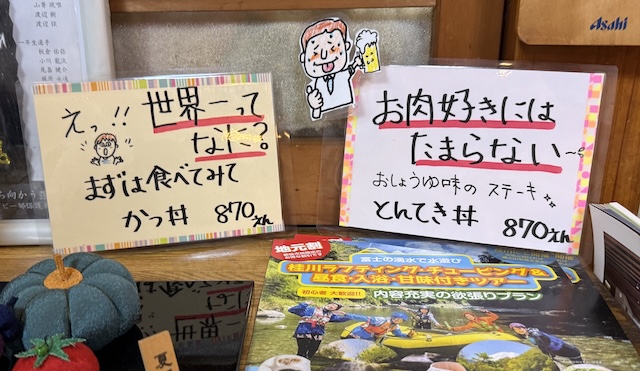 えっ!! 世界一って
なに?
まずは食べてみて
かつ丼 870えん
お肉好きには
たまらない〜
おしょうゆ味の ステーキ
とんてき丼 870えん
Asahi
地元割
富士の湧水で水遊び
桂川ラフティング・チュービング&
甘味付きツアー
初心者 大歓迎!!
内容充実の欲張りプラン
世界一
夏